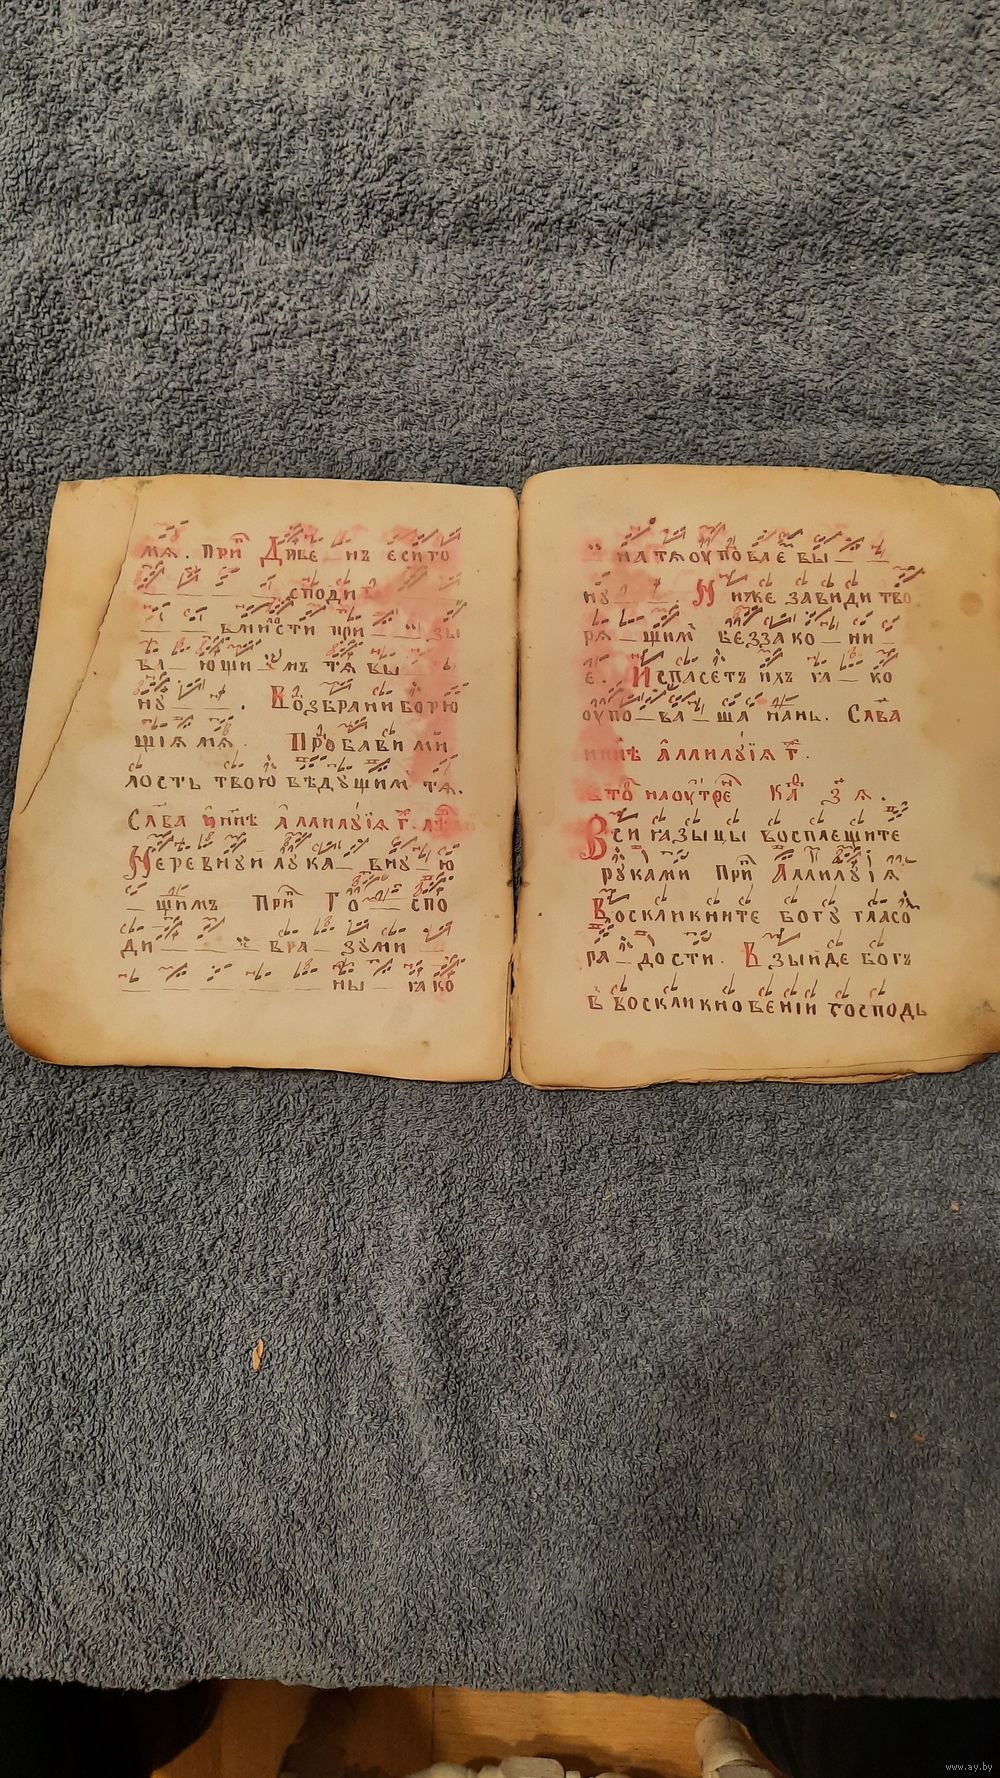 мѧ. при Диве — нъ еси го
споди
вмлⷭ҇ти при — зы
ва — ющи мъ тѧ вы
ну — . Возбрани борю
щїѧ мѧ. Пробави ми
лость твою вѣдущим тѧ.
Слава и ннѣ аллилуїѧ г҃.
Неревнуй лука — вну — ю
— щимъ При Го — спо
ди — вра — зуми
ны — ꙗко
на тѧ оуповае вы — —
ну . Ниже завиди тво
рѧ — щим беззако — ни —
е. Испасетъ ихъ ꙗ — ко
оупо — ва — ша нань. Слава
ннѣ аллилуїѧ г҃.
вто на оутрени Ка з ѧ.
Вси ꙗзыцы восплещите
руками При Аллилуїѧ
Воскликните богу гласо
ра — дости. Взыйде богъ
в воскликновенїи господь
www.ay.by